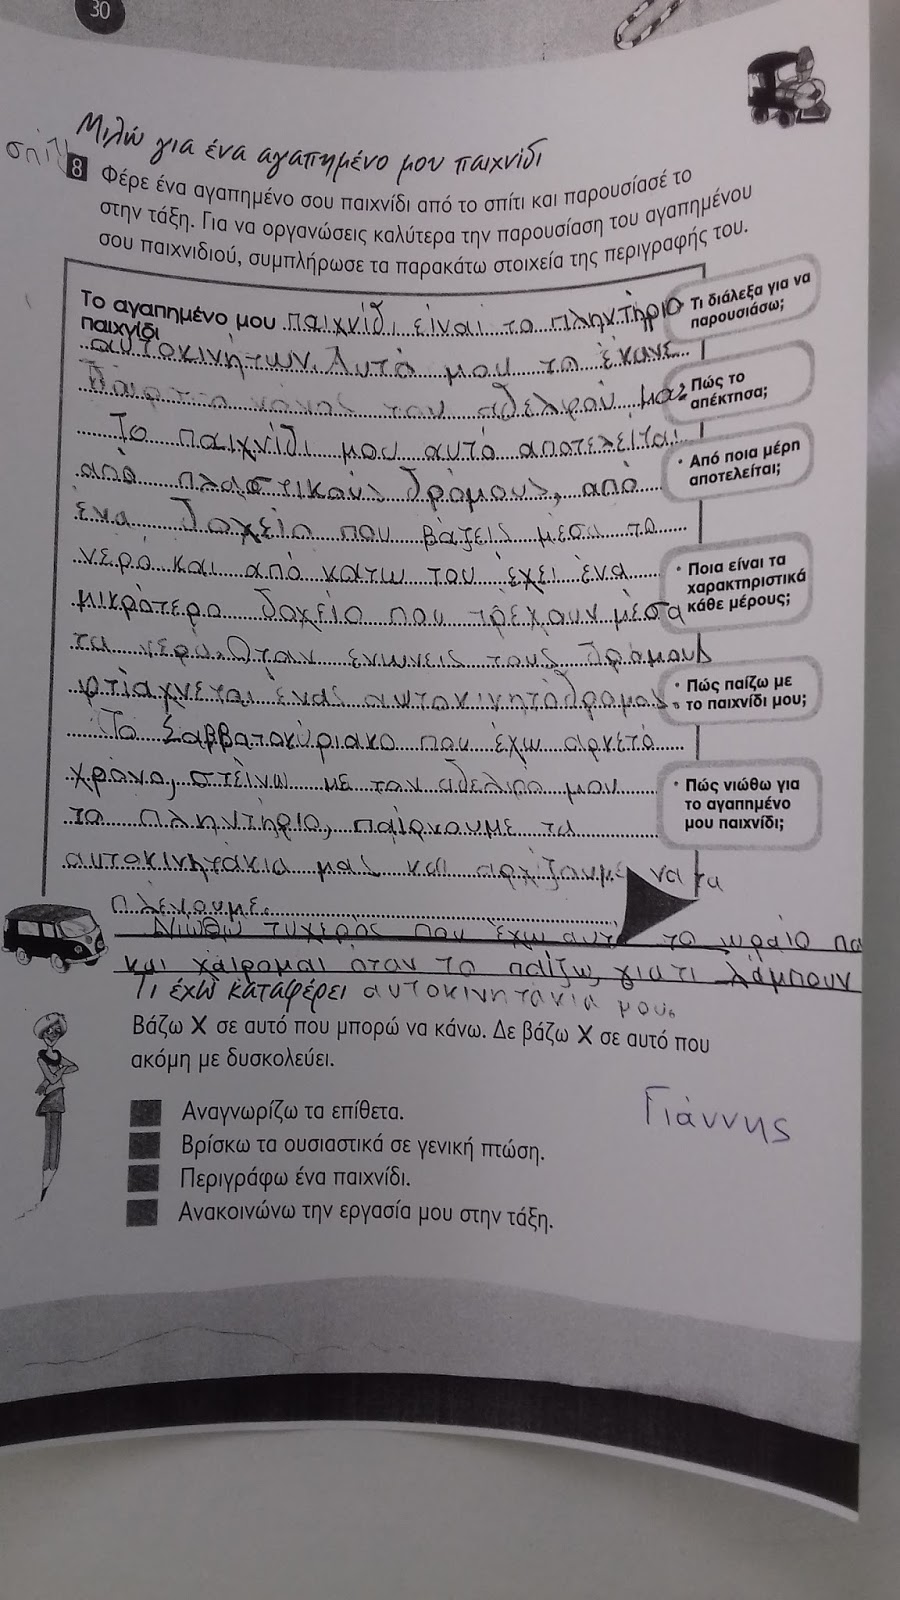 30
Μιλώ για ένα αγαπημένο μου παιχνίδι
σπίτι
8 Φέρε ένα αγαπημένο σου παιχνίδι από το σπίτι και παρουσίασέ το
στην τάξη. Για να οργανώσεις καλύτερα την παρουσίαση του αγαπημένου
σου παιχνιδιού, συμπλήρωσε τα παρακάτω στοιχεία της περιγραφής του.
Το αγαπημένο μου παιχνίδι είναι το πλητήριο
παιχνίδι
αυτοκινήτων. Αυτό μου το έκανε
δώρο ο νονός του αδελφού μας
Το παιχνίδι μου αυτό αποτελείται
από πλαστικούς δρόμους, από
ένα δοχείο που βάζεις μέσα το
νερό και από κάτω του έχει ένα
μικρότερο δοχείο που τρέχουν μέσα
τα νερά. Όταν ενώνεις τους δρόμους
φτιάχνεται ένας αυτοκινητόδρομος.
Το Σαββατοκύριακο που έχω αρκετό
χρόνο, στείνω με τον αδελφό μου
το πλητήριο, παίρνουμε τα
αυτοκινητάκια μας και αρχίζουμε να τα
πλένουμε.
Νιώθω τυχερός που έχω αυτό το ωραίο πα
και χαίρομαι όταν το παίζω, γιατι λάμπουν
αυτοκινητάκια μου.
Τι διάλεξα για να
παρουσιάσω;
Πώς το
απέκτησα;
• Από ποια μέρη
αποτελείται;
• Ποια είναι τα
χαρακτηριστικά
κάθε μέρους;
• Πώς παίζω με
το παιχνίδι μου;
• Πώς νιώθω για
το αγαπημένο
μου παιχνίδι;
Τι έχω καταφέρει
Βάζω Χ σε αυτό που μπορώ να κάνω. Δε βάζω Χ σε αυτό που
ακόμη με δυσκολεύει.
Αναγνωρίζω τα επίθετα.
Βρίσκω τα ουσιαστικά σε γενική πτώση.
Περιγράφω ένα παιχνίδι.
Ανακοινώνω την εργασία μου στην τάξη.
Γιάννης